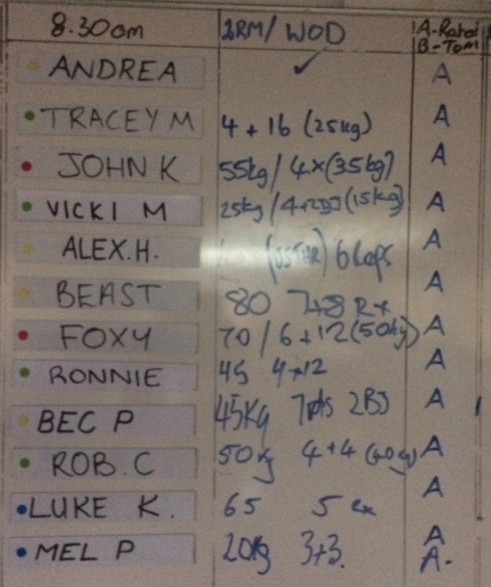 8.30am 2RM/ WOD A-Rahoi
B-Tom
ANDREA ✓ A
TRACEY M 4 + 16 (25kg) A
JOHN K 55kg / 4x(35kg) A
VICKI M 25kg / (15kg) A
ALEX.H. 6 laps A
BEAST 80 7+8 Rx A
FOXY 70 / 6 + 12 (50kg) A
RONNIE 45 4+12 A
BEC P 45kg A
ROB.C 50kg 4+4 A
LUKE K. 65 5 A
MEL P 20kg 3+3. A
A-